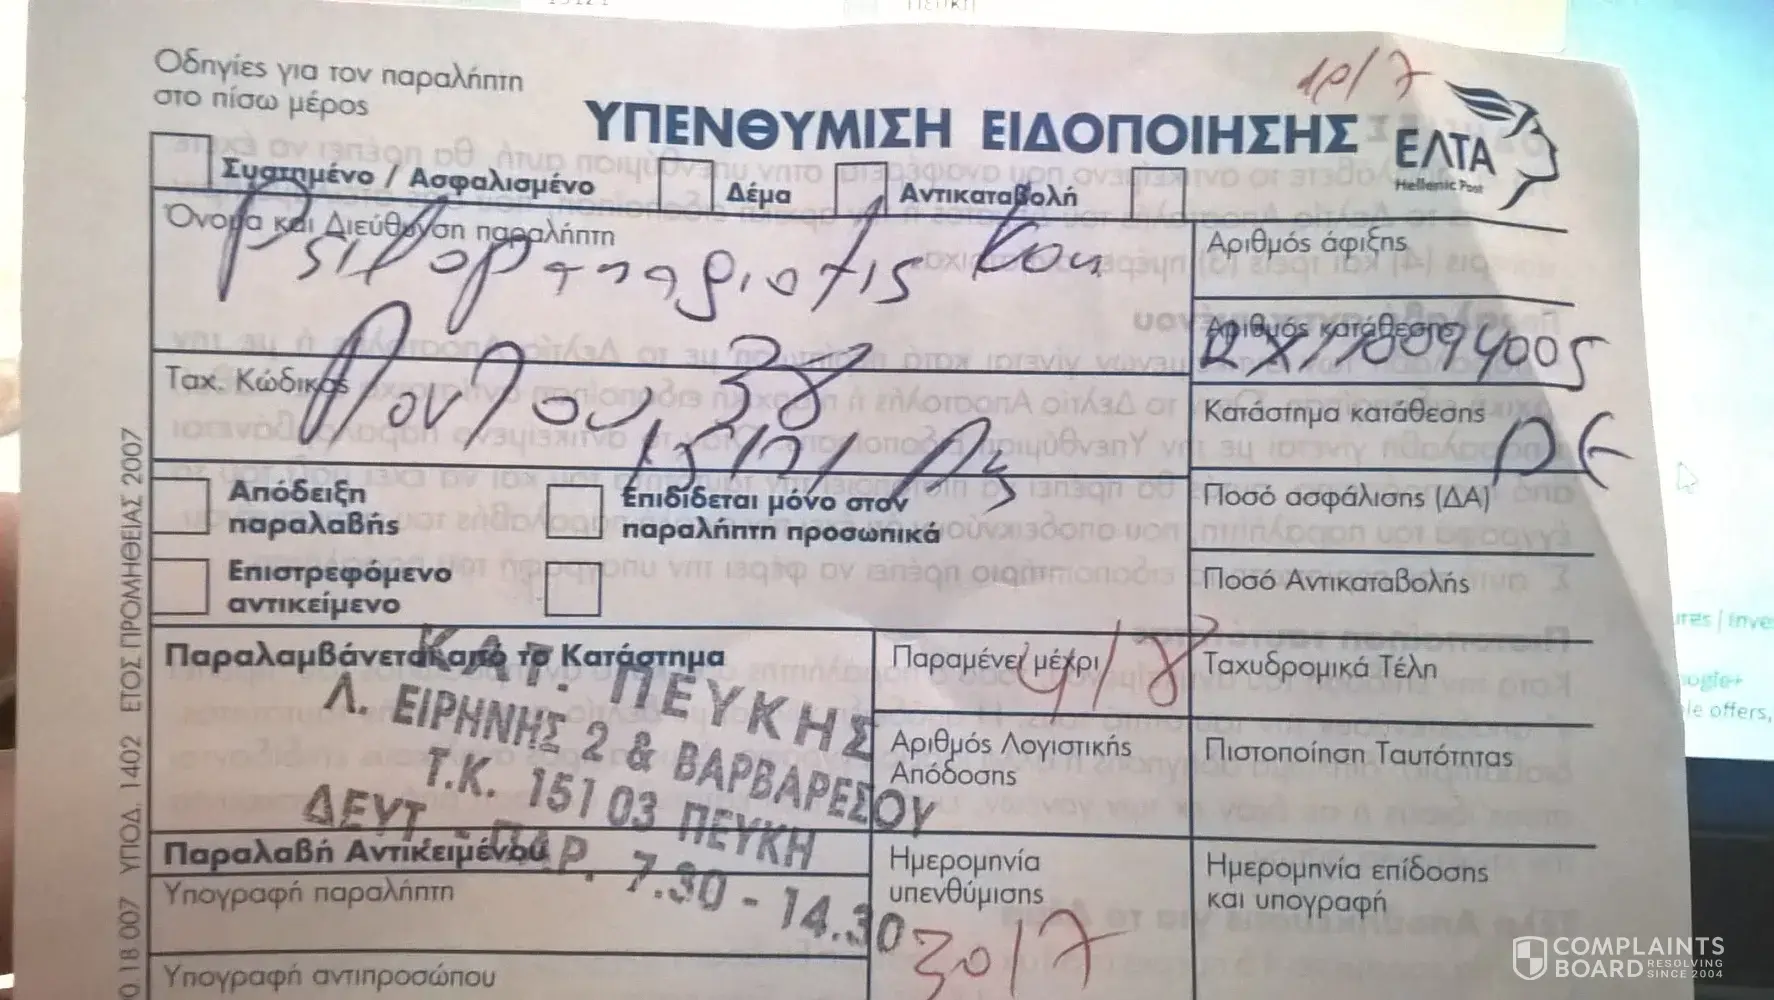 Οδηγίες για τον παραλήπτη
στο πίσω μέρος
ΥΠΕΝΘΥΜΙΣΗ ΕΙΔΟΠΟΙΗΣΗΣ
ΕΛΤΑ
Hellenic Post
Συστημένο / Ασφαλισμένο
Δέμα
Αντικαταβολή
Όνομα και Διεύθυνση παραλήπτη
Αριθμός άφιξης
Αριθμός κατάθεσης
Ταχ. Κώδικας
38
Κατάστημα κατάθεσης
DE
Απόδειξη
παραλαβής
Επιδίδεται μόνο στον
παραλήπτη προσωπικά
Ποσό ασφάλισης (ΔΑ)
Επιστρεφόμενο
αντικείμενο
Ποσό Αντικαταβολής
Παραλαμβάνεται από το Κατάστημα
ΚΑΤ. ΠΕΥΚΗΣ
Λ. ΕΙΡΗΝΗΣ 2 & ΒΑΡΒΑΡΕΣΟΥ
Τ.Κ. 151 03 ΠΕΥΚΗ
ΔΕΥΤ. - ΠΑΡ. 7.30 - 14.30
Παραμένει μέχρι
4/8
Ταχυδρομικά Τέλη
Αριθμός Λογιστικής
Απόδοσης
Πιστοποίηση Ταυτότητας
Παραλαβή Αντικειμένου
Υπογραφή παραλήπτη
Ημερομηνία
υπενθύμισης
30/7
Ημερομηνία επίδοσης
και υπογραφή
Υπογραφή αντιπροσώπου
18 007 ΥΠΟΔ. 1402 ΕΤΟΣ ΠΡΟΜΗΘΕΙΑΣ 2007
COMPLAINTS
BOARD
RESOLVING
SINCE 2004